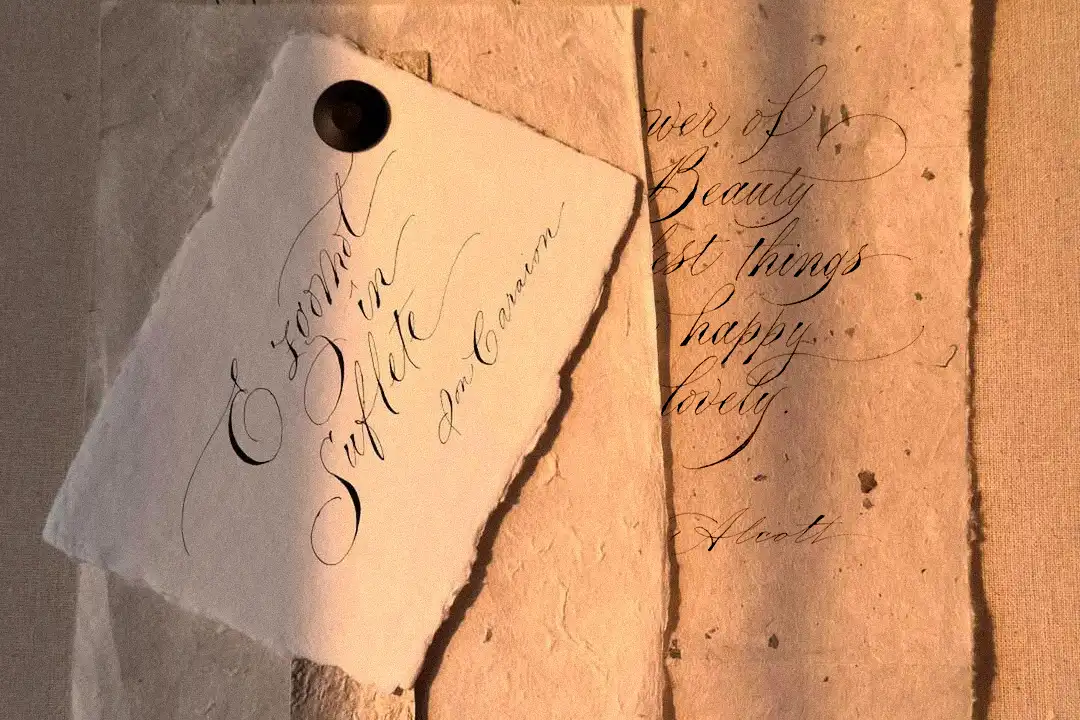 E
în
Suflete
Ion Caraion
wer of
Beauty
est things
happy.
lovely.
Alcott